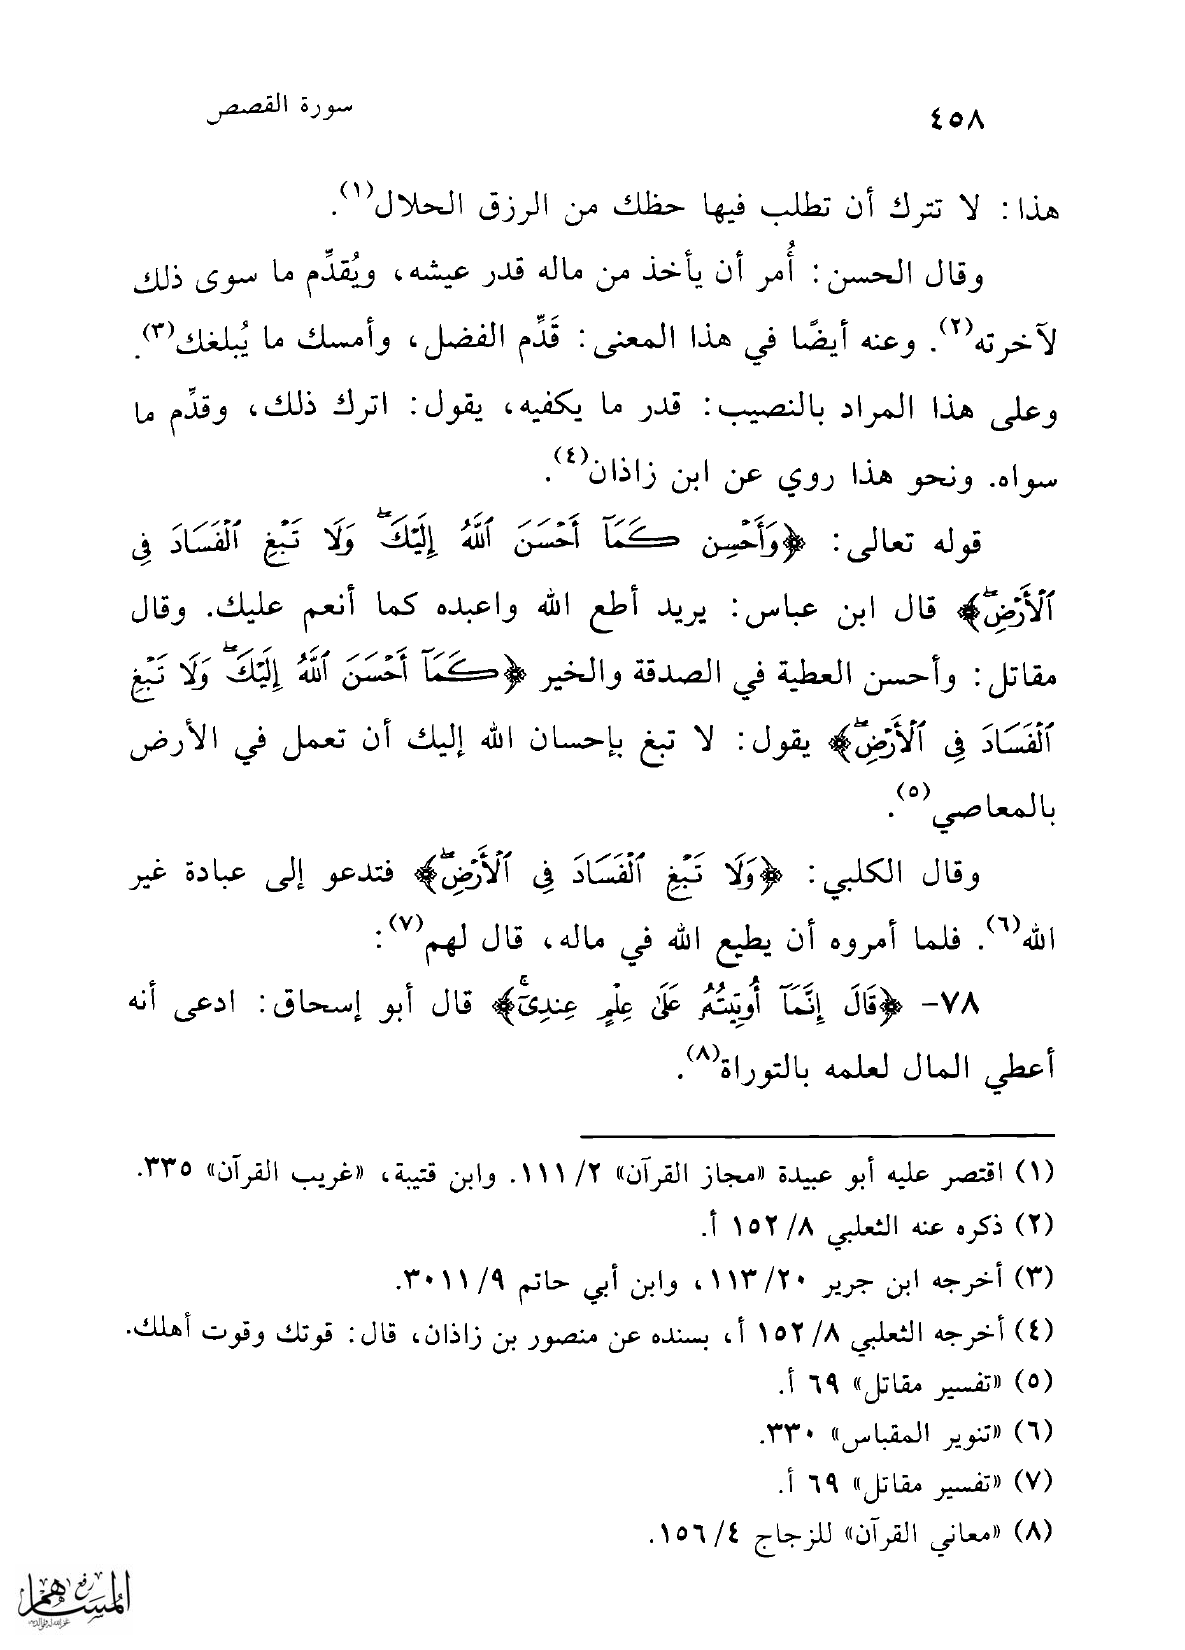 ٤٥٨
سورة القصص
هذا: لا تترك أن تطلب فيها حظك من الرزق الحلال(١).
وقال الحسن: أُمر أن يأخذ من ماله قدر عيشه، ويُقدِّم ما سوى ذلك
لآخرته(٢). وعنه أيضًا في هذا المعنى: قَدِّم الفضل، وأمسك ما يُبلغك(٣).
وعلى هذا المراد بالنصيب: قدر ما يكفيه، يقول: اترك ذلك، وقدِّم ما
سواه. ونحو هذا روي عن ابن زاذان(٤).
قوله تعالى: ﴿وَأَحْسِن كَمَآ أَحْسَنَ ٱللَّهُ إِلَيْكَۖ وَلَا تَبْغِ ٱلْفَسَادَ فِى
ٱلْأَرْضِۖ﴾ قال ابن عباس: يريد أطع الله واعبده كما أنعم عليك. وقال
مقاتل: وأحسن العطية في الصدقة والخير ﴿كَمَآ أَحْسَنَ ٱللَّهُ إِلَيْكَۖ وَلَا تَبْغِ
ٱلْفَسَادَ فِى ٱلْأَرْضِۖ﴾ يقول: لا تبغ بإحسان الله إليك أن تعمل في الأرض
بالمعاصي(٥).
وقال الكلبي: ﴿وَلَا تَبْغِ ٱلْفَسَادَ فِى ٱلْأَرْضِۖ﴾ فتدعو إلى عبادة غير
الله(٦). فلما أمروه أن يطيع الله في ماله، قال لهم(٧):
٧٨- ﴿قَالَ إِنَّمَآ أُوتِيتُهُۥ عَلَىٰ عِلْمٍ عِندِىٓۚ﴾ قال أبو إسحاق: ادعى أنه
أعطي المال لعلمه بالتوراة(٨).
(١) اقتصر عليه أبو عبيدة «مجاز القرآن» ٢/ ١١١. وابن قتيبة، «غريب القرآن» ٣٣٥.
(٢) ذكره عنه الثعلبي ٨/ ١٥٢ أ.
(٣) أخرجه ابن جرير ٢٠/ ١١٣، وابن أبي حاتم ٩/ ٣٠١١.
(٤) أخرجه الثعلبي ٨/ ١٥٢ أ، بسنده عن منصور بن زاذان، قال: قوتك وقوت أهلك.
(٥) «تفسير مقاتل» ٦٩ أ.
(٦) «تنوير المقباس» ٣٣٠.
(٧) «تفسير مقاتل» ٦٩ أ.
(٨) «معاني القرآن» للزجاج ٤/ ١٥٦.